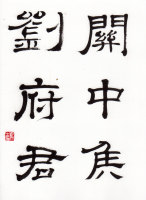 關中侯
劉府君